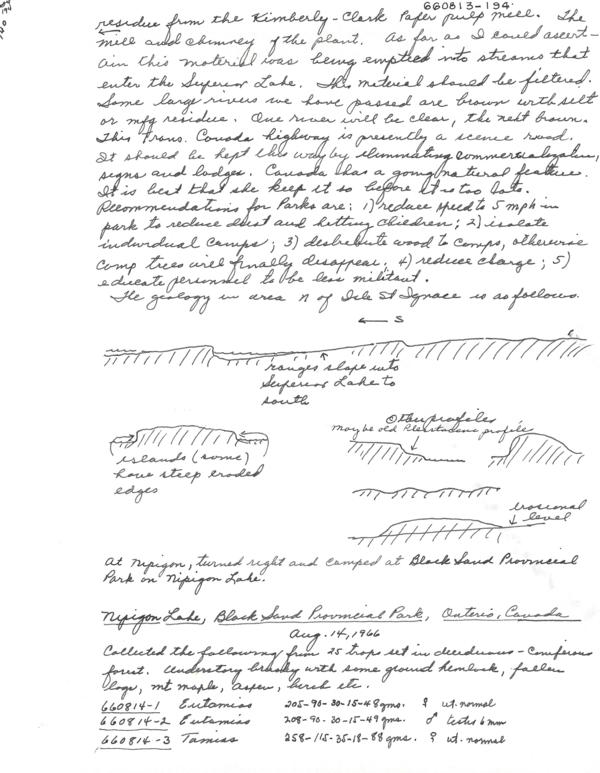 660813-194
residue from the Kimberly-Clark Paper pulp mill. The
mill and chimney of the plant. As far as I could ascert-
ain this material was being emptied into streams that
enter the Superior Lake. This material should be filtered.
Some large rivers we have passed are brown with silt
or mfg residue. One river will be clear, the next brown.
This Trans. Canada highway is presently a scenic road.
It should be kept this way by eliminating commercialization,
signs and lodges. Canada has a going natural feature.
It is best that she keep it so before it is too late.
Recommendations for Parks are: 1) reduce speed to 5 mph in
park to reduce dust and hitting children; 2) isolate
individual camps; 3) distribute wood to camps, otherwise
camp trees will finally disappear; 4) reduce charge; 5)
educate personnel to be less militant.
The geology in area N of Isle St Ignace is as follows.
← S
ranges slope into
Superior Lake to
south
Other profiles
may be old Pleistocene profile
islands (some)
have steep eroded
edges
erosional
level
At Nipigon, turned right and camped at Black Sand Provincial
Park on Nipigon Lake.
Nipigon Lake, Black Sand Provincial Park, Ontario, Canada
Aug. 14, 1966
Collected the following from 25 traps set in deciduous-coniferous
forest. Understory brushy with some ground hemlock, fallen
logs, mt maple, aspen, birch etc.
660814-1 Eutamias 205-90-30-15-48gms. ♀ ut. normal
660814-2 Eutamias 208-90-30-15-49 gms. ♂ testes 6 mm
660814-3 Tamias 258-115-35-18-88 gms. ♀ ut. normal